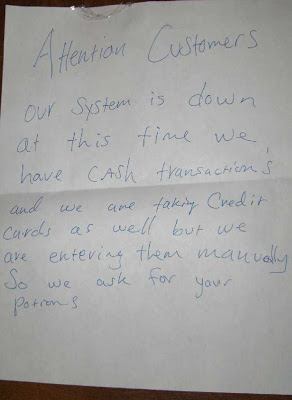 Attention Customers
our System is down
at this time we
have CASH transaction's
and we are taking Credit
Cards as well but we
are entering them manually
So we ask for your
potrons